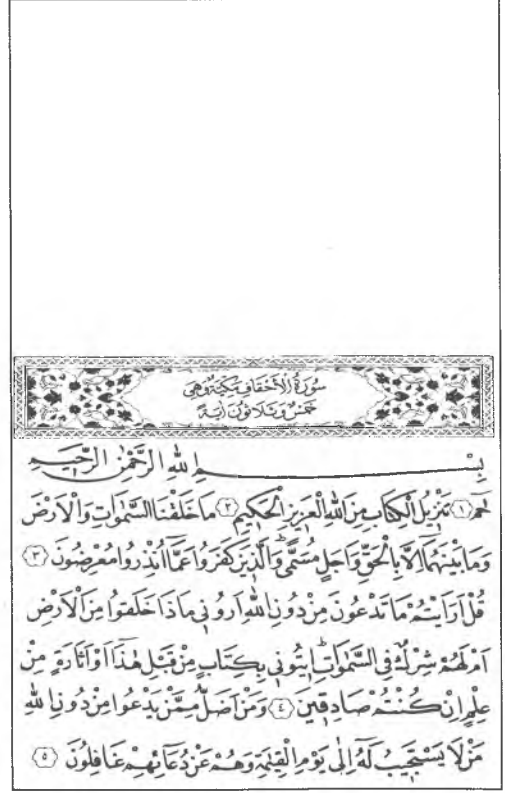 سُورَةُ الْاَحْقَافِ مَكِّيَّةٌ وَهِيَ
خَمْسٌ وَثَلَاثُونَ اٰيَةً
بِسْمِ اللهِ الرَّحْمٰنِ الرَّحِيمِ
حٰمٓ ﴿١﴾ تَنْزِيلُ الْكِتَابِ مِنَ اللهِ الْعَزِيزِ الْحَكِيمِ ﴿٢﴾ مَا خَلَقْنَا السَّمٰوَاتِ وَالْاَرْضَ
وَمَا بَيْنَهُمَٓا اِلَّا بِالْحَقِّ وَاَجَلٍ مُسَمًّىۜ وَالَّذِينَ كَفَرُوا عَمَّٓا اُنْذِرُوا مُعْرِضُونَ ﴿٣﴾
قُلْ اَرَاَيْتُمْ مَا تَدْعُونَ مِنْ دُونِ اللهِ اَرُونِي مَاذَا خَلَقُوا مِنَ الْاَرْضِ
اَمْ لَهُمْ شِرْكٌ فِي السَّمٰوَاتِۜ اِيتُونِي بِكِتَابٍ مِنْ قَبْلِ هٰذَٓا اَوْ اَثَارَةٍ مِنْ
عِلْمٍ اِنْ كُنْتُمْ صَادِقِينَ ﴿٤﴾ وَمَنْ اَضَلُّ مِمَّنْ يَدْعُوا مِنْ دُونِ اللهِ
مَنْ لَا يَسْتَجِيبُ لَهُٓ اِلٰى يَوْمِ الْقِيٰمَةِ وَهُمْ عَنْ دُعَٓائِهِمْ غَافِلُونَ ﴿٥﴾